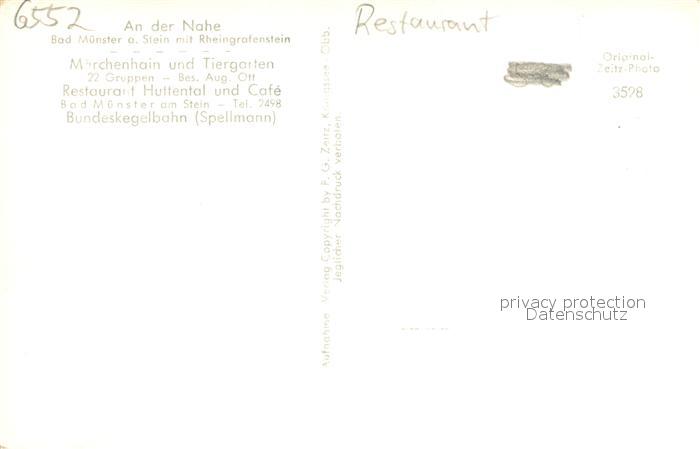 6552
An der Nahe
Bad Münster a. Stein mit Rheingrafenstein
Märchenhain und Tiergarten
22 Gruppen – Bes. Aug. Ott
Restaurant Huttental und Café
Bad Münster am Stein – Tel. 2498
Bundeskegelbahn (Spellmann)
Aufnahme Verlag Copyright by F. G. Zeitz, Königssee Obb.
Jeglicher Nachdruck verboten.
Restaurant
Original-
Zeitz-Photo
3598
privacy protection
Datenschutz